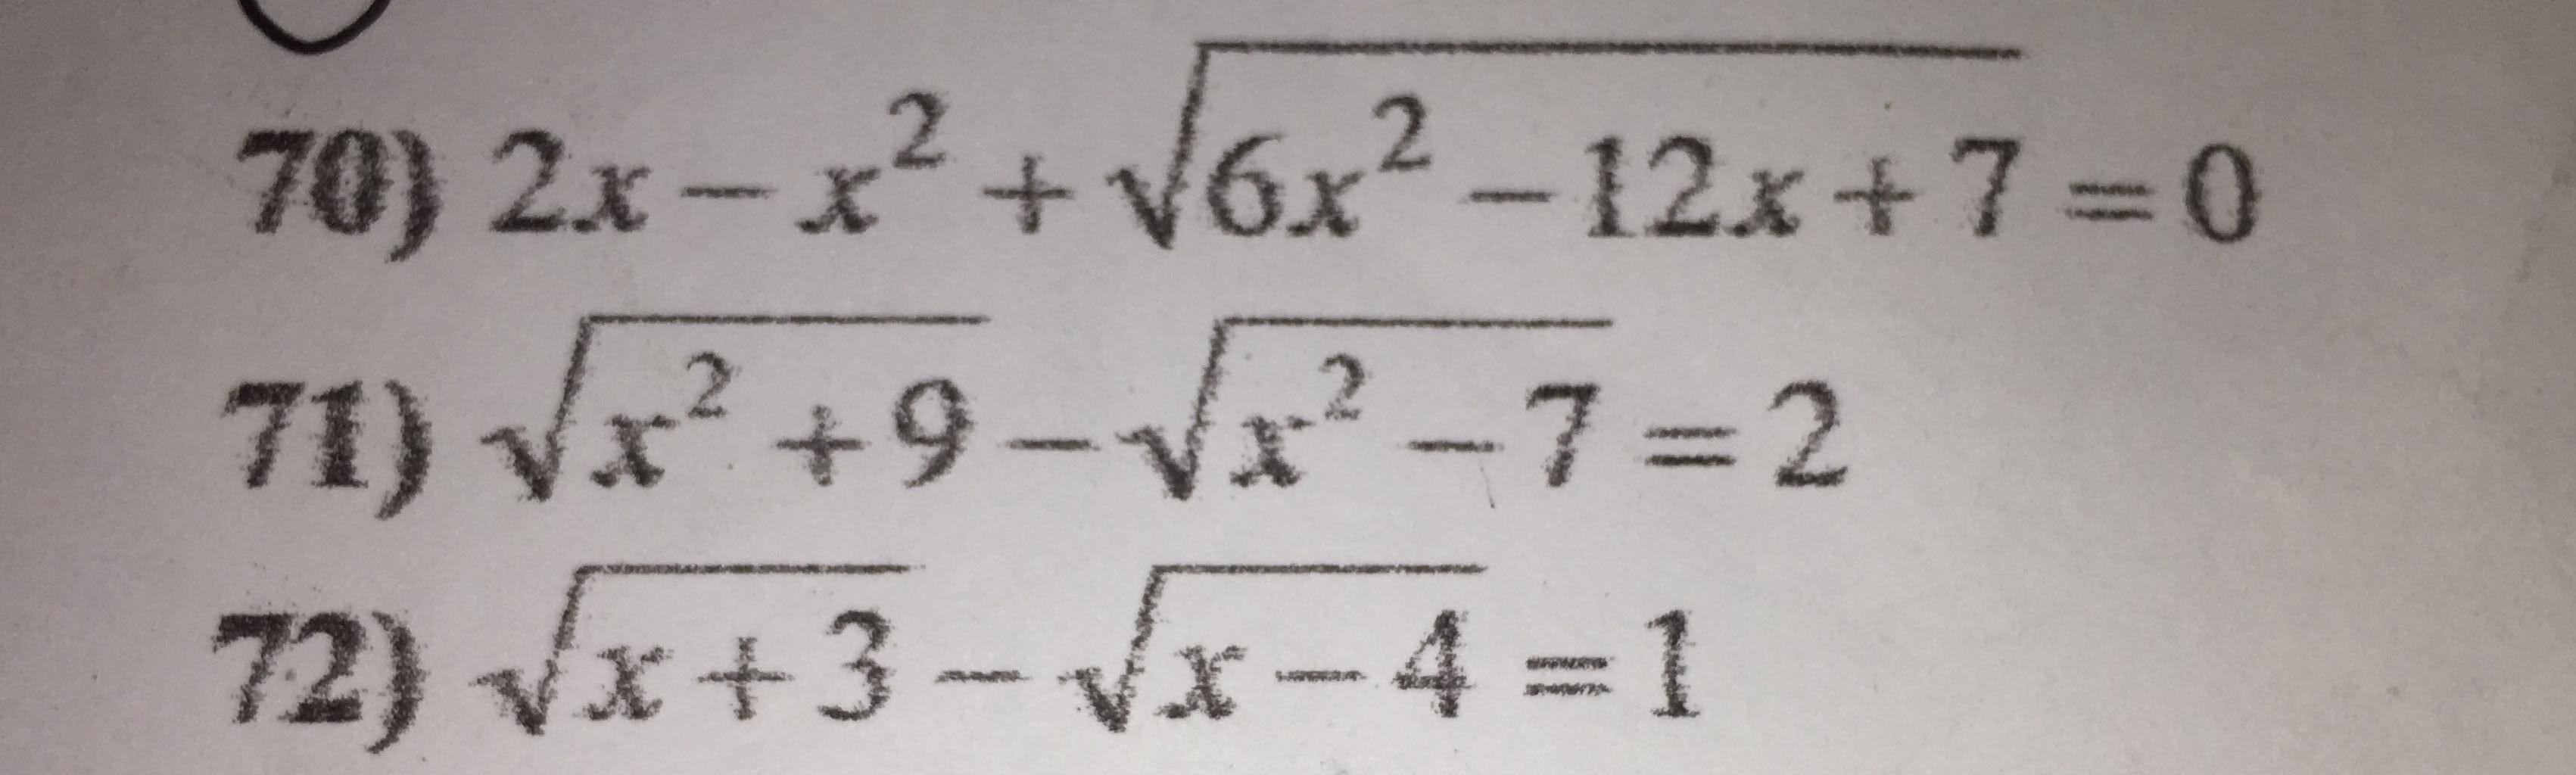 70) 2x − x² + √(6x² − 12x + 7) = 0
71) √(x² + 9) − √(x² − 7) = 2
72) √(x + 3) − √(x − 4) = 1